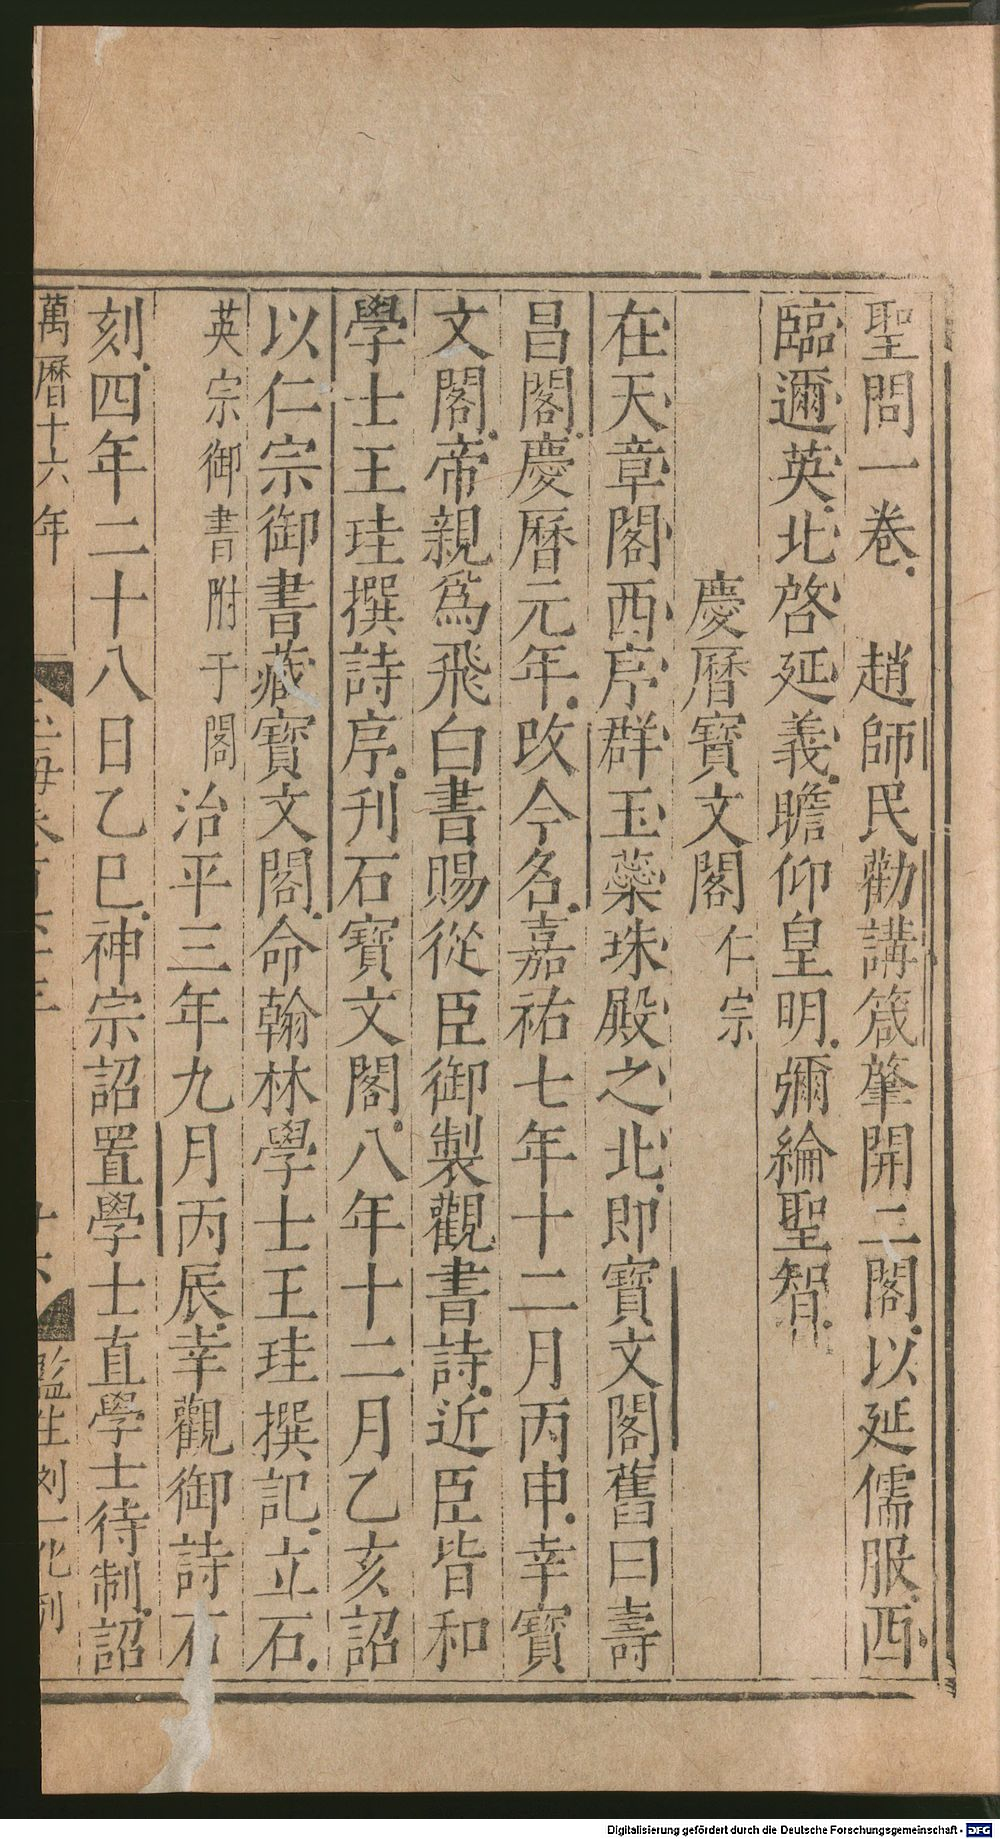 聖問一卷 趙師民勸講箴肇開二閣以延儒服西
臨邇英北啓延義瞻仰皇明彌綸聖智
慶曆寶文閣 仁宗
在天章閣西序群玉蘂珠殿之北即寶文閣舊曰壽
昌閣慶曆元年改今名嘉祐七年十二月丙申幸寶
文閣帝親爲飛白書賜從臣御製觀書詩近臣皆和
學士王珪撰詩序刊石寶文閣八年十二月乙亥詔
以仁宗御書藏寶文閣命翰林學士王珪撰記立石
英宗御書附于閣 治平三年九月丙辰幸觀御詩石
刻四年二十八日乙巳神宗詔置學士直學士待制詔
萬曆十六年
監生刘一化刊
Digitalisierung gefördert durch die Deutsche Forschungsgemeinschaft - DFG